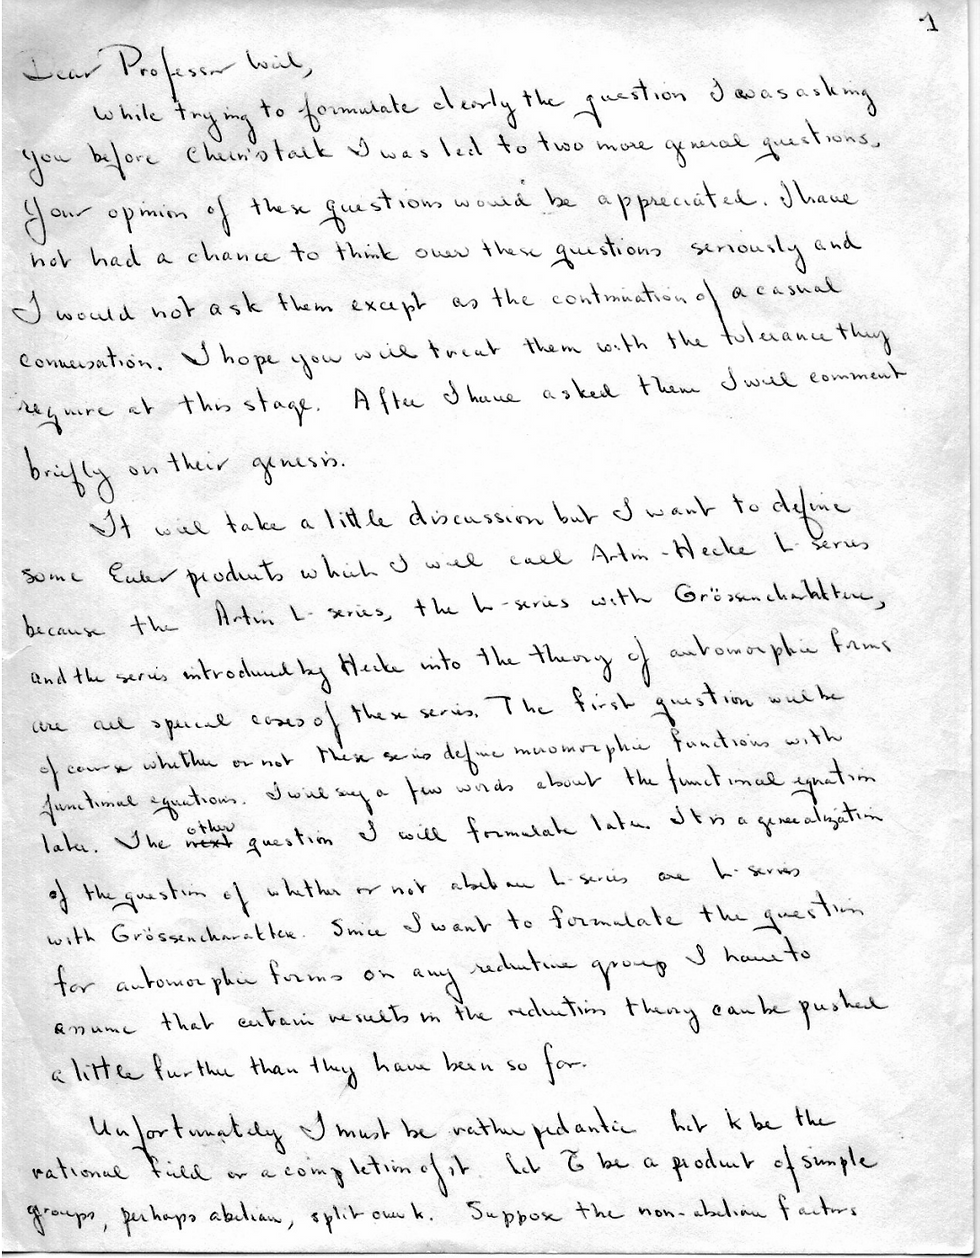 1
Dear Professor Weil,
While trying to formulate clearly the question I was asking
you before Chern's talk I was led to two more general questions.
Your opinion of these questions would be appreciated. I have
not had a chance to think over these questions seriously and
I would not ask them except as the continuation of a casual
conversation. I hope you will treat them with the tolerance they
require at this stage. After I have asked them I will comment
briefly on their genesis.
It will take a little discussion but I want to define
some Euler products which I will call Artin-Hecke L-series
because the Artin L-series, the L-series with Grössencharakter,
and the series introduced by Hecke into the theory of automorphic forms
are all special cases of these series. The first question will be
of course whether or not these series define meromorphic functions with
functional equations. I will say a few words about the functional equation
later. The next other question I will formulate later. It is a generalization
of the question of whether or not abelian L-series are L-series
with Grössencharakter. Since I want to formulate the question
for automorphic forms on any reductive group I have to
assume that certain results in the reduction theory can be pushed
a little further than they have been so far.
Unfortunately I must be rather pedantic. Let k be the
rational field or a completion of it. Let G̃ be a product of simple
groups, perhaps abelian, split over k. Suppose the non-abelian factors